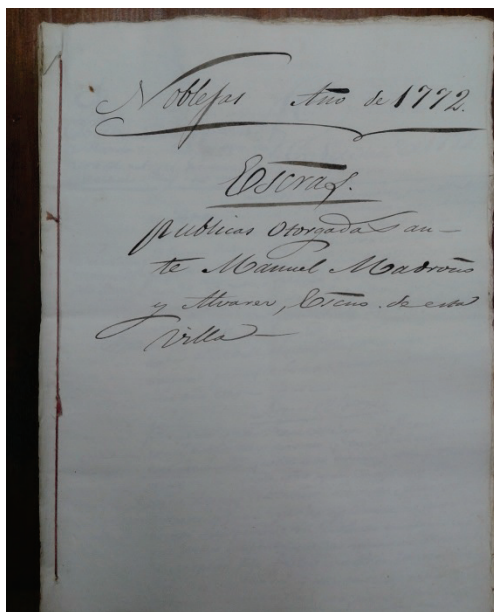 Noblejas Año de 1772.
Escras.
publicas otorgadas an-
te Manuel Madroño
y Alvarez, Escno. de esta
villa